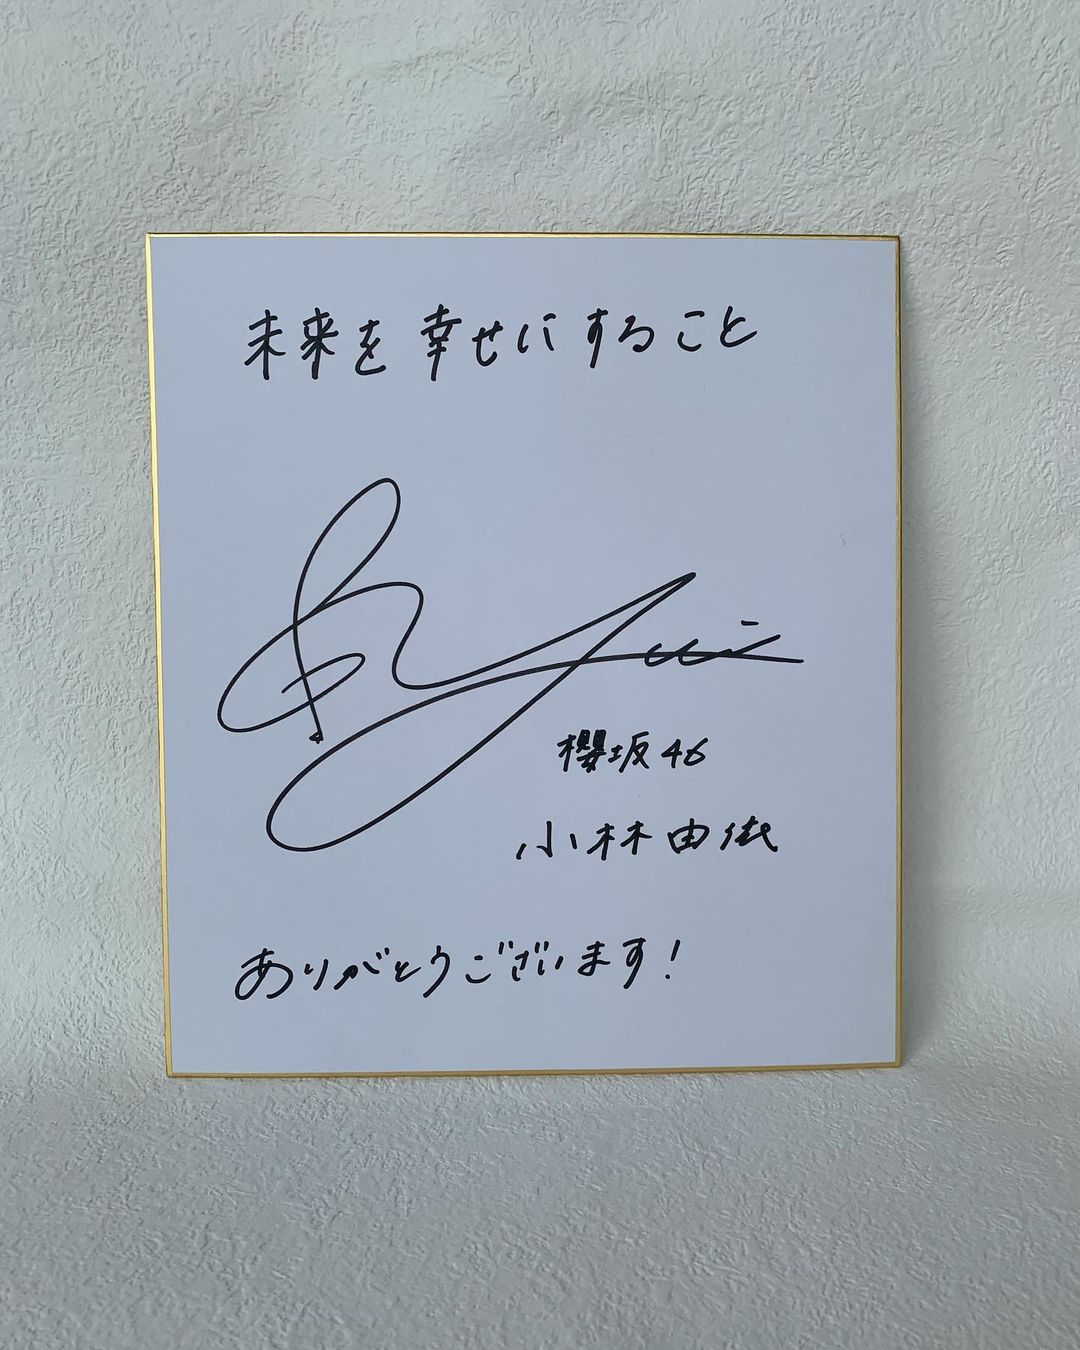 未来を幸せにすること
Yui
櫻坂46
小林由依
ありがとうございます!